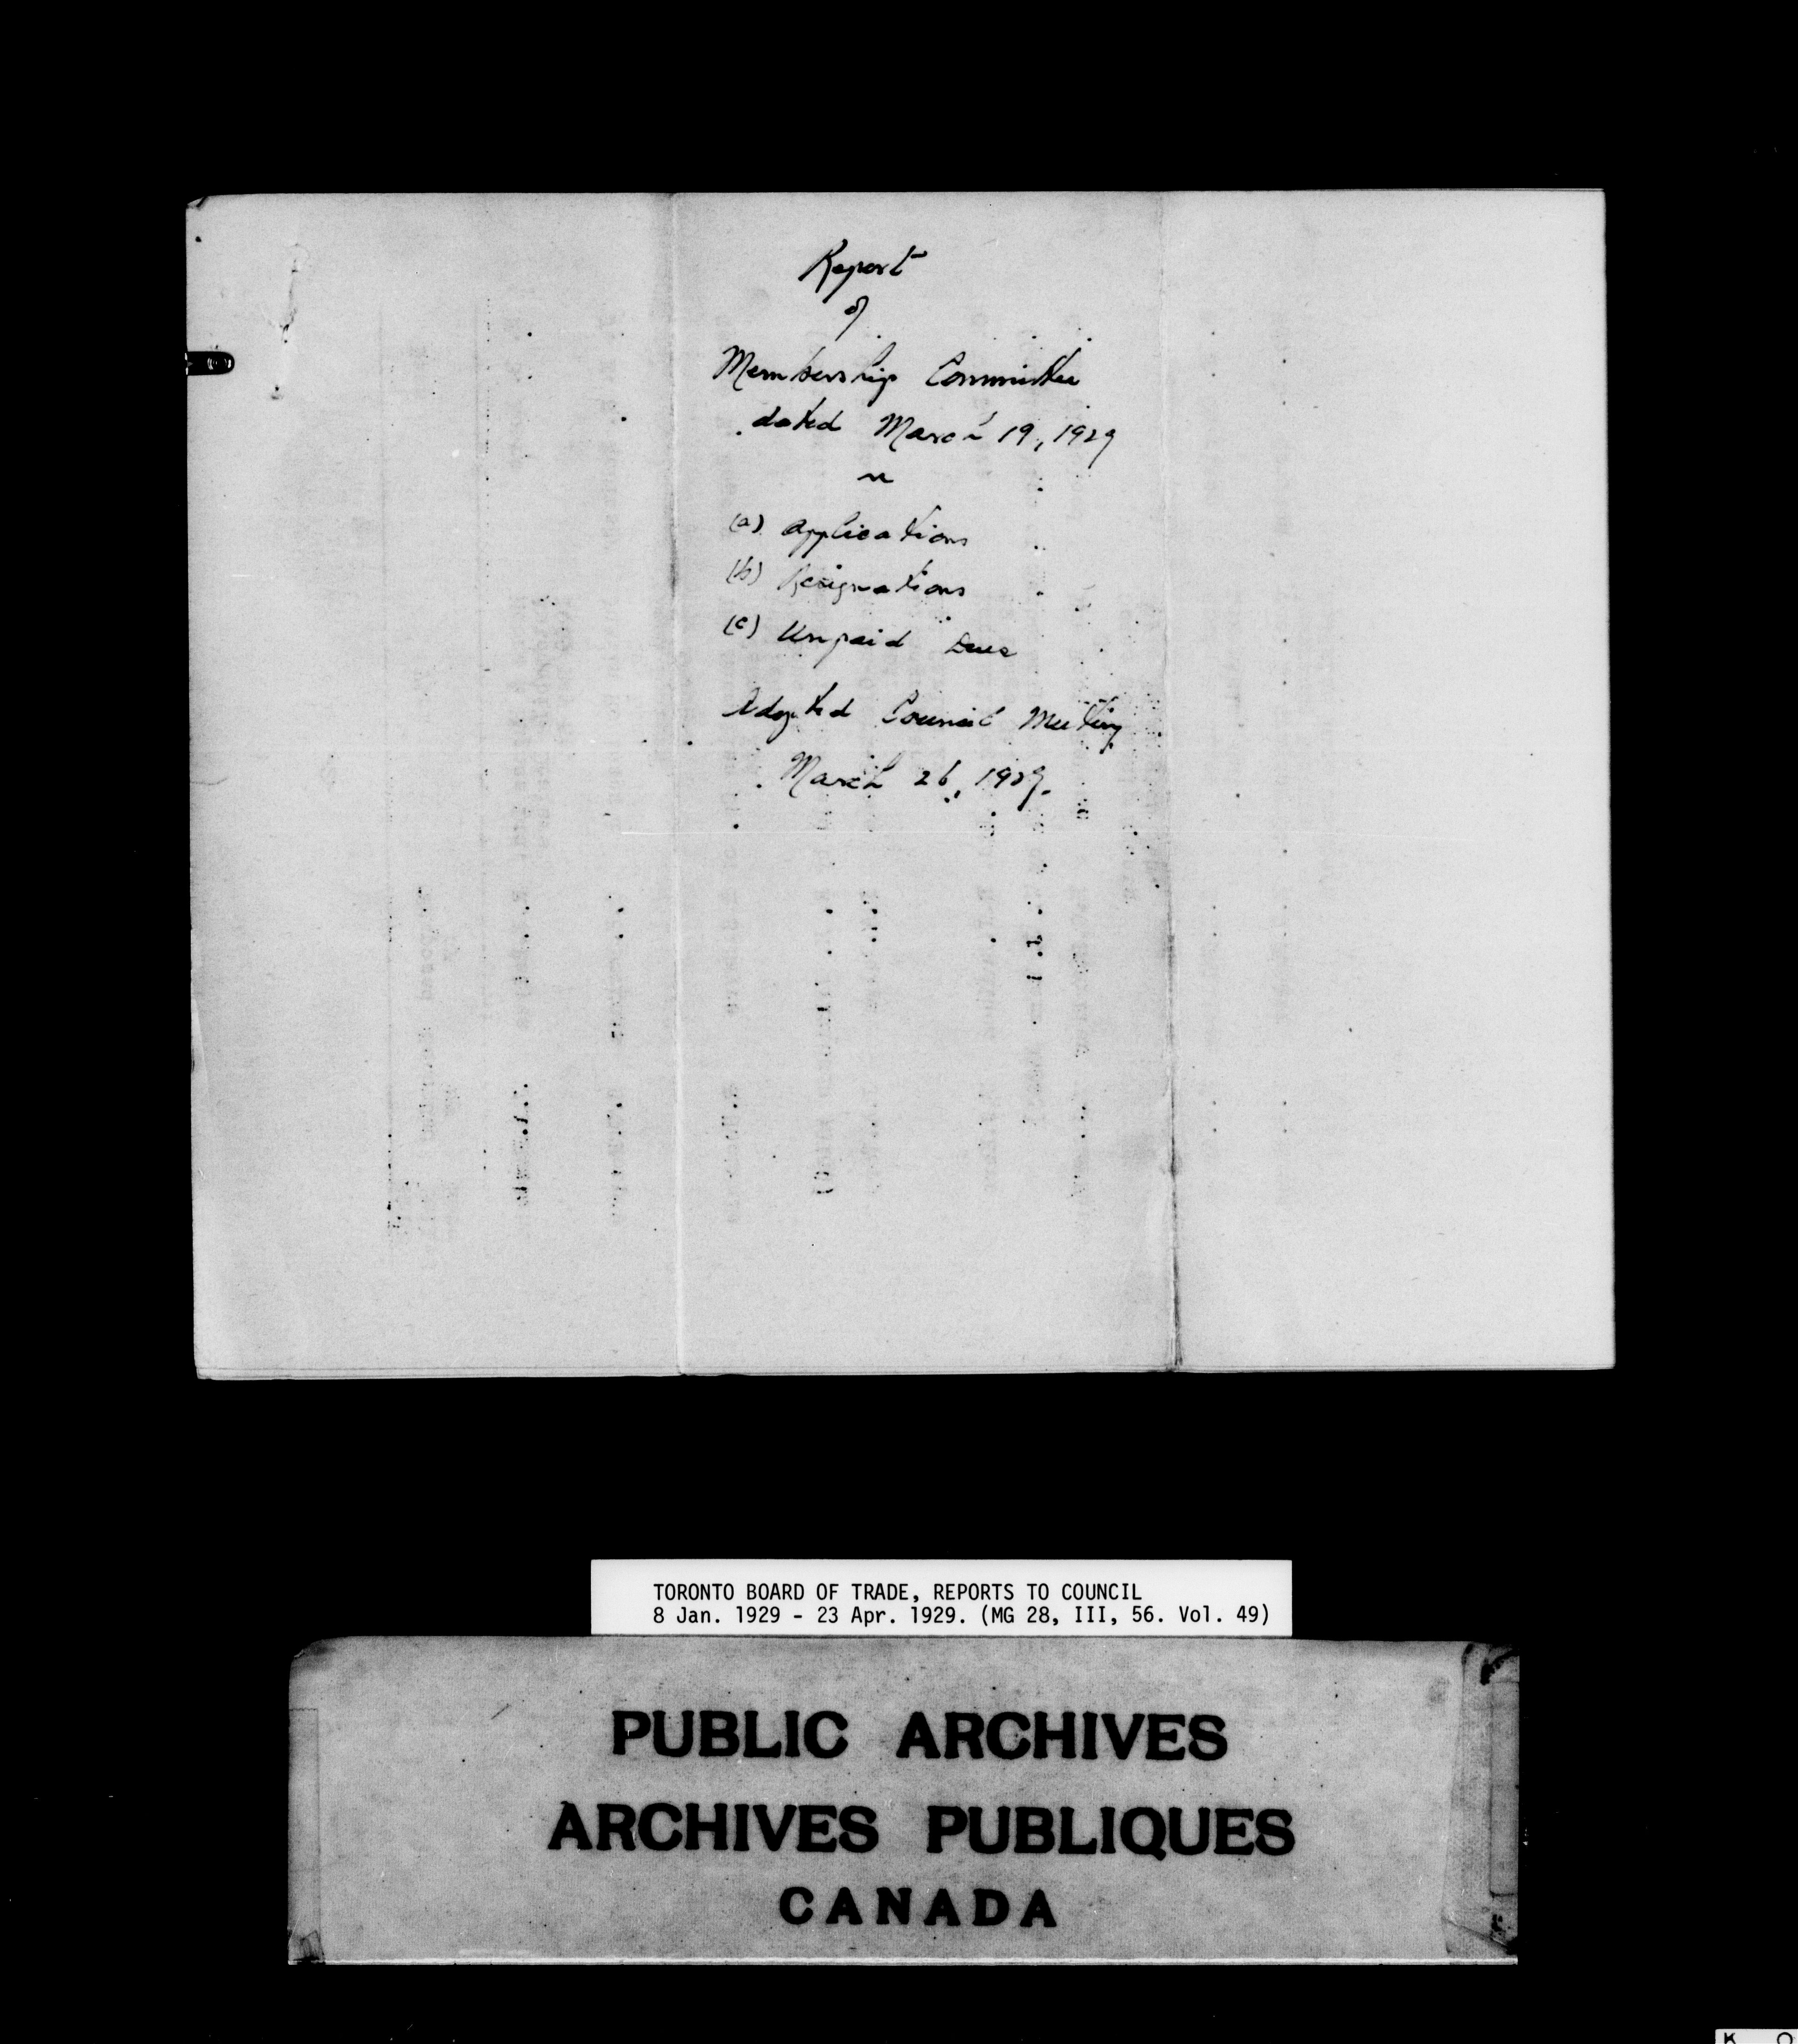 Report
of
Membership Committee
dated March 19, 1929
re
(a) Applications
(b) Resignations
(c) Unpaid Dues
Adopted Council Meeting
March 26, 1929.
TORONTO BOARD OF TRADE, REPORTS TO COUNCIL
8 Jan. 1929 - 23 Apr. 1929. (MG 28, III, 56. Vol. 49)
PUBLIC ARCHIVES
ARCHIVES PUBLIQUES
CANADA